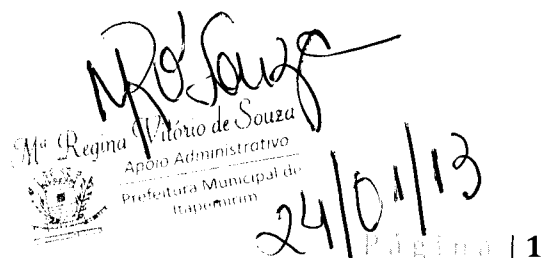 Mª Regina Vitório de Souza
Apoio Administrativo
Prefeitura Municipal de
Itapemirim
24/01/13
Página | 1